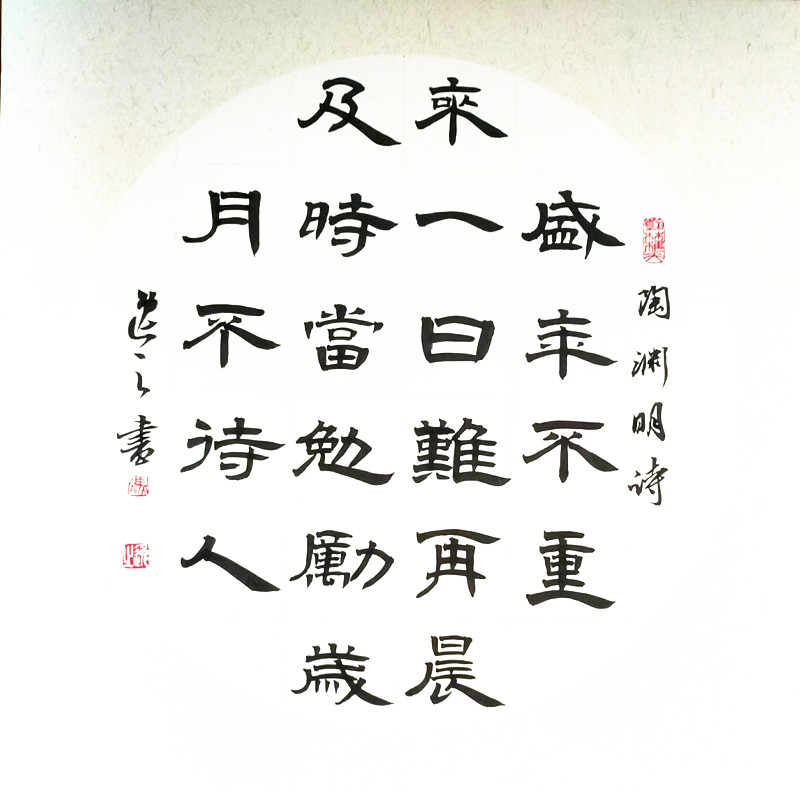 陶淵明詩
盛年不重
來一日難再晨
及時當勉勵歲
月不待人
之書